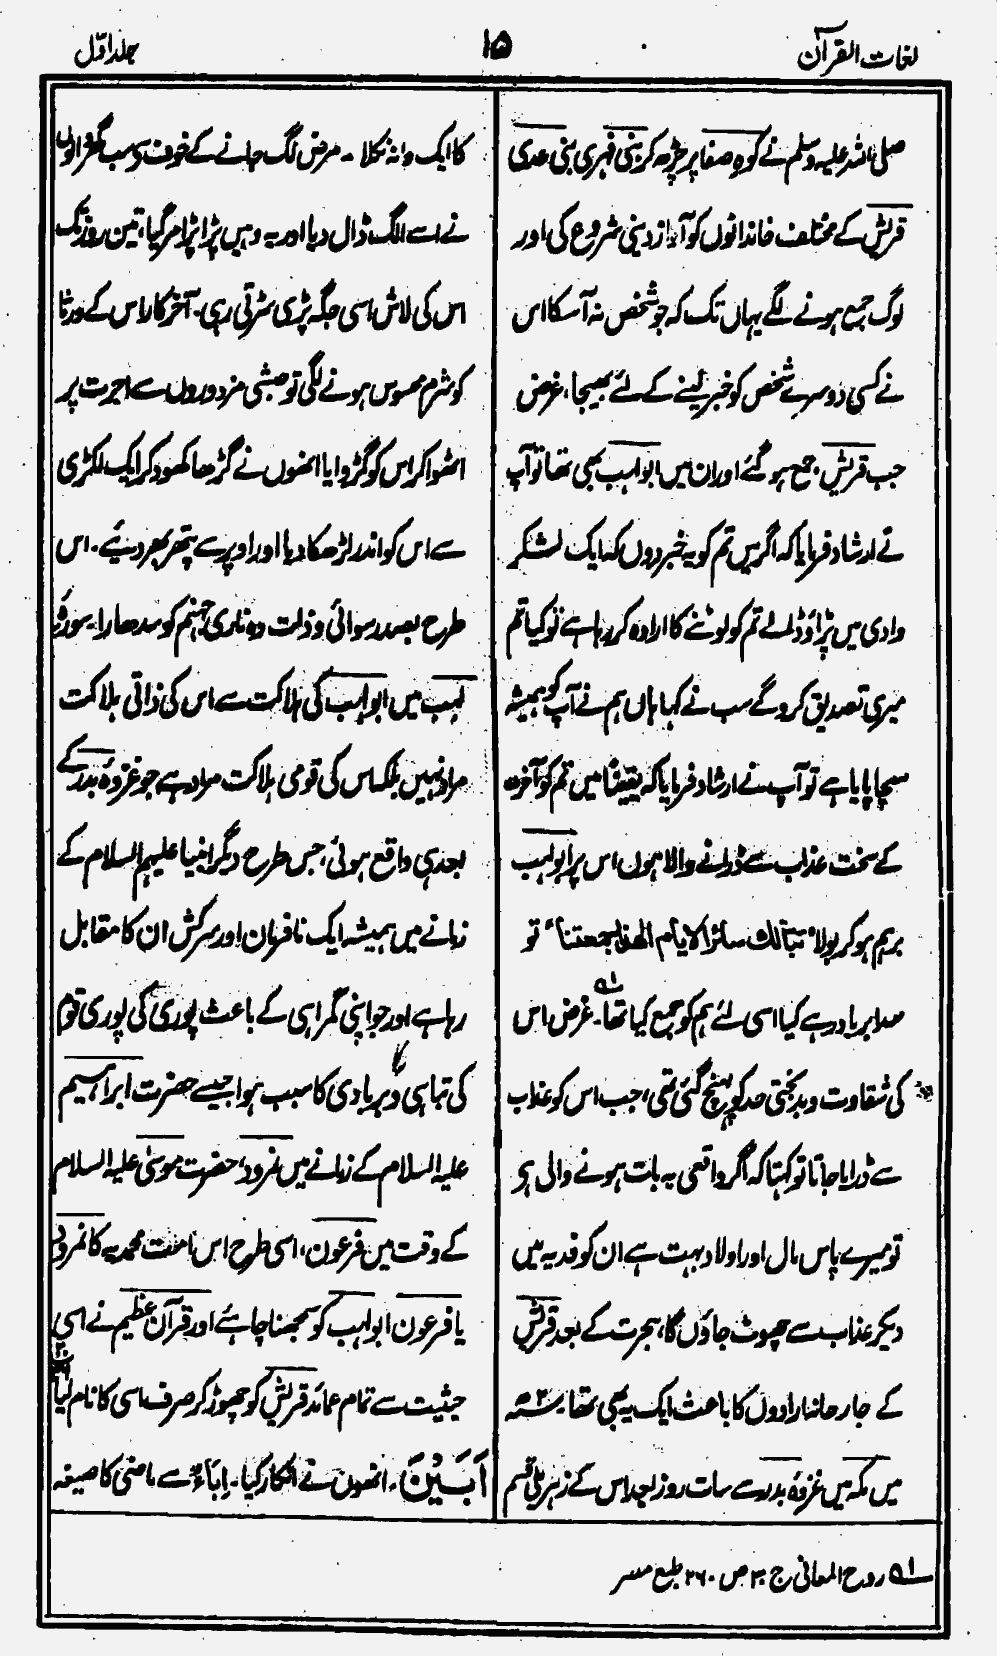 لغات القرآن
۱۵
جلد اوّل
صلی اللہ علیہ وسلم نے کوہِ صفا پر چڑھ کر بنی فہری بنی عدی
قریش کے مختلف خاندانوں کو آواز دینی شروع کی اور
لوگ جمع ہونے لگے یہاں تک کہ جو شخص نہ آسکا اس
نے کسی دوسرے شخص کو خبر لینے کے لئے بھیجا، غرض
جب قریش جمع ہو گئے اور ان میں ابولہب بھی تھا تو آپ
نے ارشاد فرمایا کہ اگر میں تم کو یہ خبر دوں کہ ایک لشکر
وادی میں پڑاؤ ڈالے تم کو لوٹنے کا ارادہ کر رہا ہے تو کیا تم
میری تصدیق کرو گے سب نے کہا ہاں ہم نے آپ کو ہمیشہ
سچا پایا ہے تو آپ نے ارشاد فرمایا کہ یقیناً میں تم کو آخرت
کے سخت عذاب سے ڈرانے والا ہوں اس پر ابولہب
برہم ہو کر بولا" تبا لك سائر الايام الهذا جمعتنا" تو
سدا برباد رہے کیا اسی لئے ہم کو جمع کیا تھا۔ ۱؎ غرض اس
کی شقاوت و بدبختی حد کو پہنچ گئی تھی، جب اس کو عذاب
سے ڈرایا جاتا تو کہتا کہ اگر واقعی یہ بات ہونے والی ہی
تو میرے پاس مال اور اولاد بہت ہے ان کو فدیہ میں
دیکر عذاب سے چھوٹ جاؤں گا، ہجرت کے بعد قریش
کے جارحانہ ارادوں کا باعث ایک یہ بھی تھا۔ ۲ھ
میں مکہ میں غزوہ بدر سے سات روز بعد اس کے زہریلی قسم
کا ایک دانہ نکلا۔ مرض لگ جانے کے خوف سے سب گھر والوں
نے اسے الگ ڈال دیا اور یہ وہیں پڑا پڑا مر گیا، تین روز تک
اس کی لاش اسی جگہ پڑی سڑتی رہی۔ آخر کار اس کے ورثا
کو شرم محسوس ہونے لگی تو حبشی مزدوروں سے اجرت پر
اٹھوا کر اس کو گڑوایا انھوں نے گڑھا کھود کر ایک لکڑی
سے اس کو اندر لڑھکا دیا اور اوپر سے پتھر بھر دیئے۔ اس
طرح بصد رسوائی و ذلت وہ ناری جہنم کو سدھارا۔ سورۂ
لہب میں ابولہب کی ہلاکت سے اس کی ذاتی ہلاکت
مراد نہیں بلکہ اس کی قومی ہلاکت مراد ہے جو غزوۂ بدر کے
بعد ہی واقع ہوئی، جس طرح دیگر انبیا علیہم السلام کے
زمانے میں ہمیشہ ایک نافرمان اور سرکش ان کا مقابل
رہا ہے اور جو اپنی گمراہی کے باعث پوری کی پوری قوم
کی تباہی و بربادی کا سبب ہوا جیسے حضرت ابراہیم
علیہ السلام کے زمانے میں نمرود، حضرت موسیٰ علیہ السلام
کے وقت میں فرعون، اسی طرح اس امت محمدیہ کا نمرود
یا فرعون ابولہب کو سمجھنا چاہئے اور قرآن عظیم نے اسی
حیثیت سے تمام عمائد قریش کو چھوڑ کر صرف اسی کا نام لیا
اَبَیْنَ۔ انھوں نے انکار کیا۔ اِبَاءٌ سے ماضی کا صیغہ
۱؎ روح المعانی ج ۳۰ ص ۲۶۰ طبع مصر